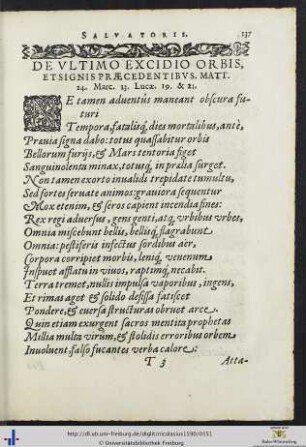 SALVATORIS. 137
DE VLTIMO EXCIDIO ORBIS,
ET SIGNIS PRÆCEDENTIBVS. MATT.
24. Marc. 13. Lucæ. 19. & 21.
NE tamen aduentûs maneant obscura fu-
turi
Tempora, fatalisq́; dies mortalibus, antè,
Prauia signa dabo: totus quassabitur orbis
Bellorum furijs, & Mars tentoria figet
Sanguinolenta minax, totusq́; in prælia surget.
Non tamen exorto inualidi trepidate tumultu,
Sed fortes seruate animos: grauiora sequentur
Mox etenim, & seros capient incendia fines:
Rex regi aduersus, gens genti, atq́; vrbibus vrbes,
Omnia miscebunt bellis, bellicq́; flagrabunt
Omnia: pestiferis infectus sordibus aër,
Corpora corripiet morbis, leniq́; venenum
Inspuet afflatu in viuos, raptimq́; necabit.
Terra tremet, nullis impulsa vaporibus, ingens,
Et rimas aget & solido defissa fatiscet
Pondere, & euersa structuras obruet arce.
Quin etiam exurgent sacros mentita prophetas
Millia multa virûm, & stolidis erroribus orbem
Inuoluent, falso fucantes verba calore:
T 3 Atta-
http://dl.ub.uni-freiburg.de/diglit/nicolausius1590/0151
© Universitätsbibliothek Freiburg
Baden-Württemberg